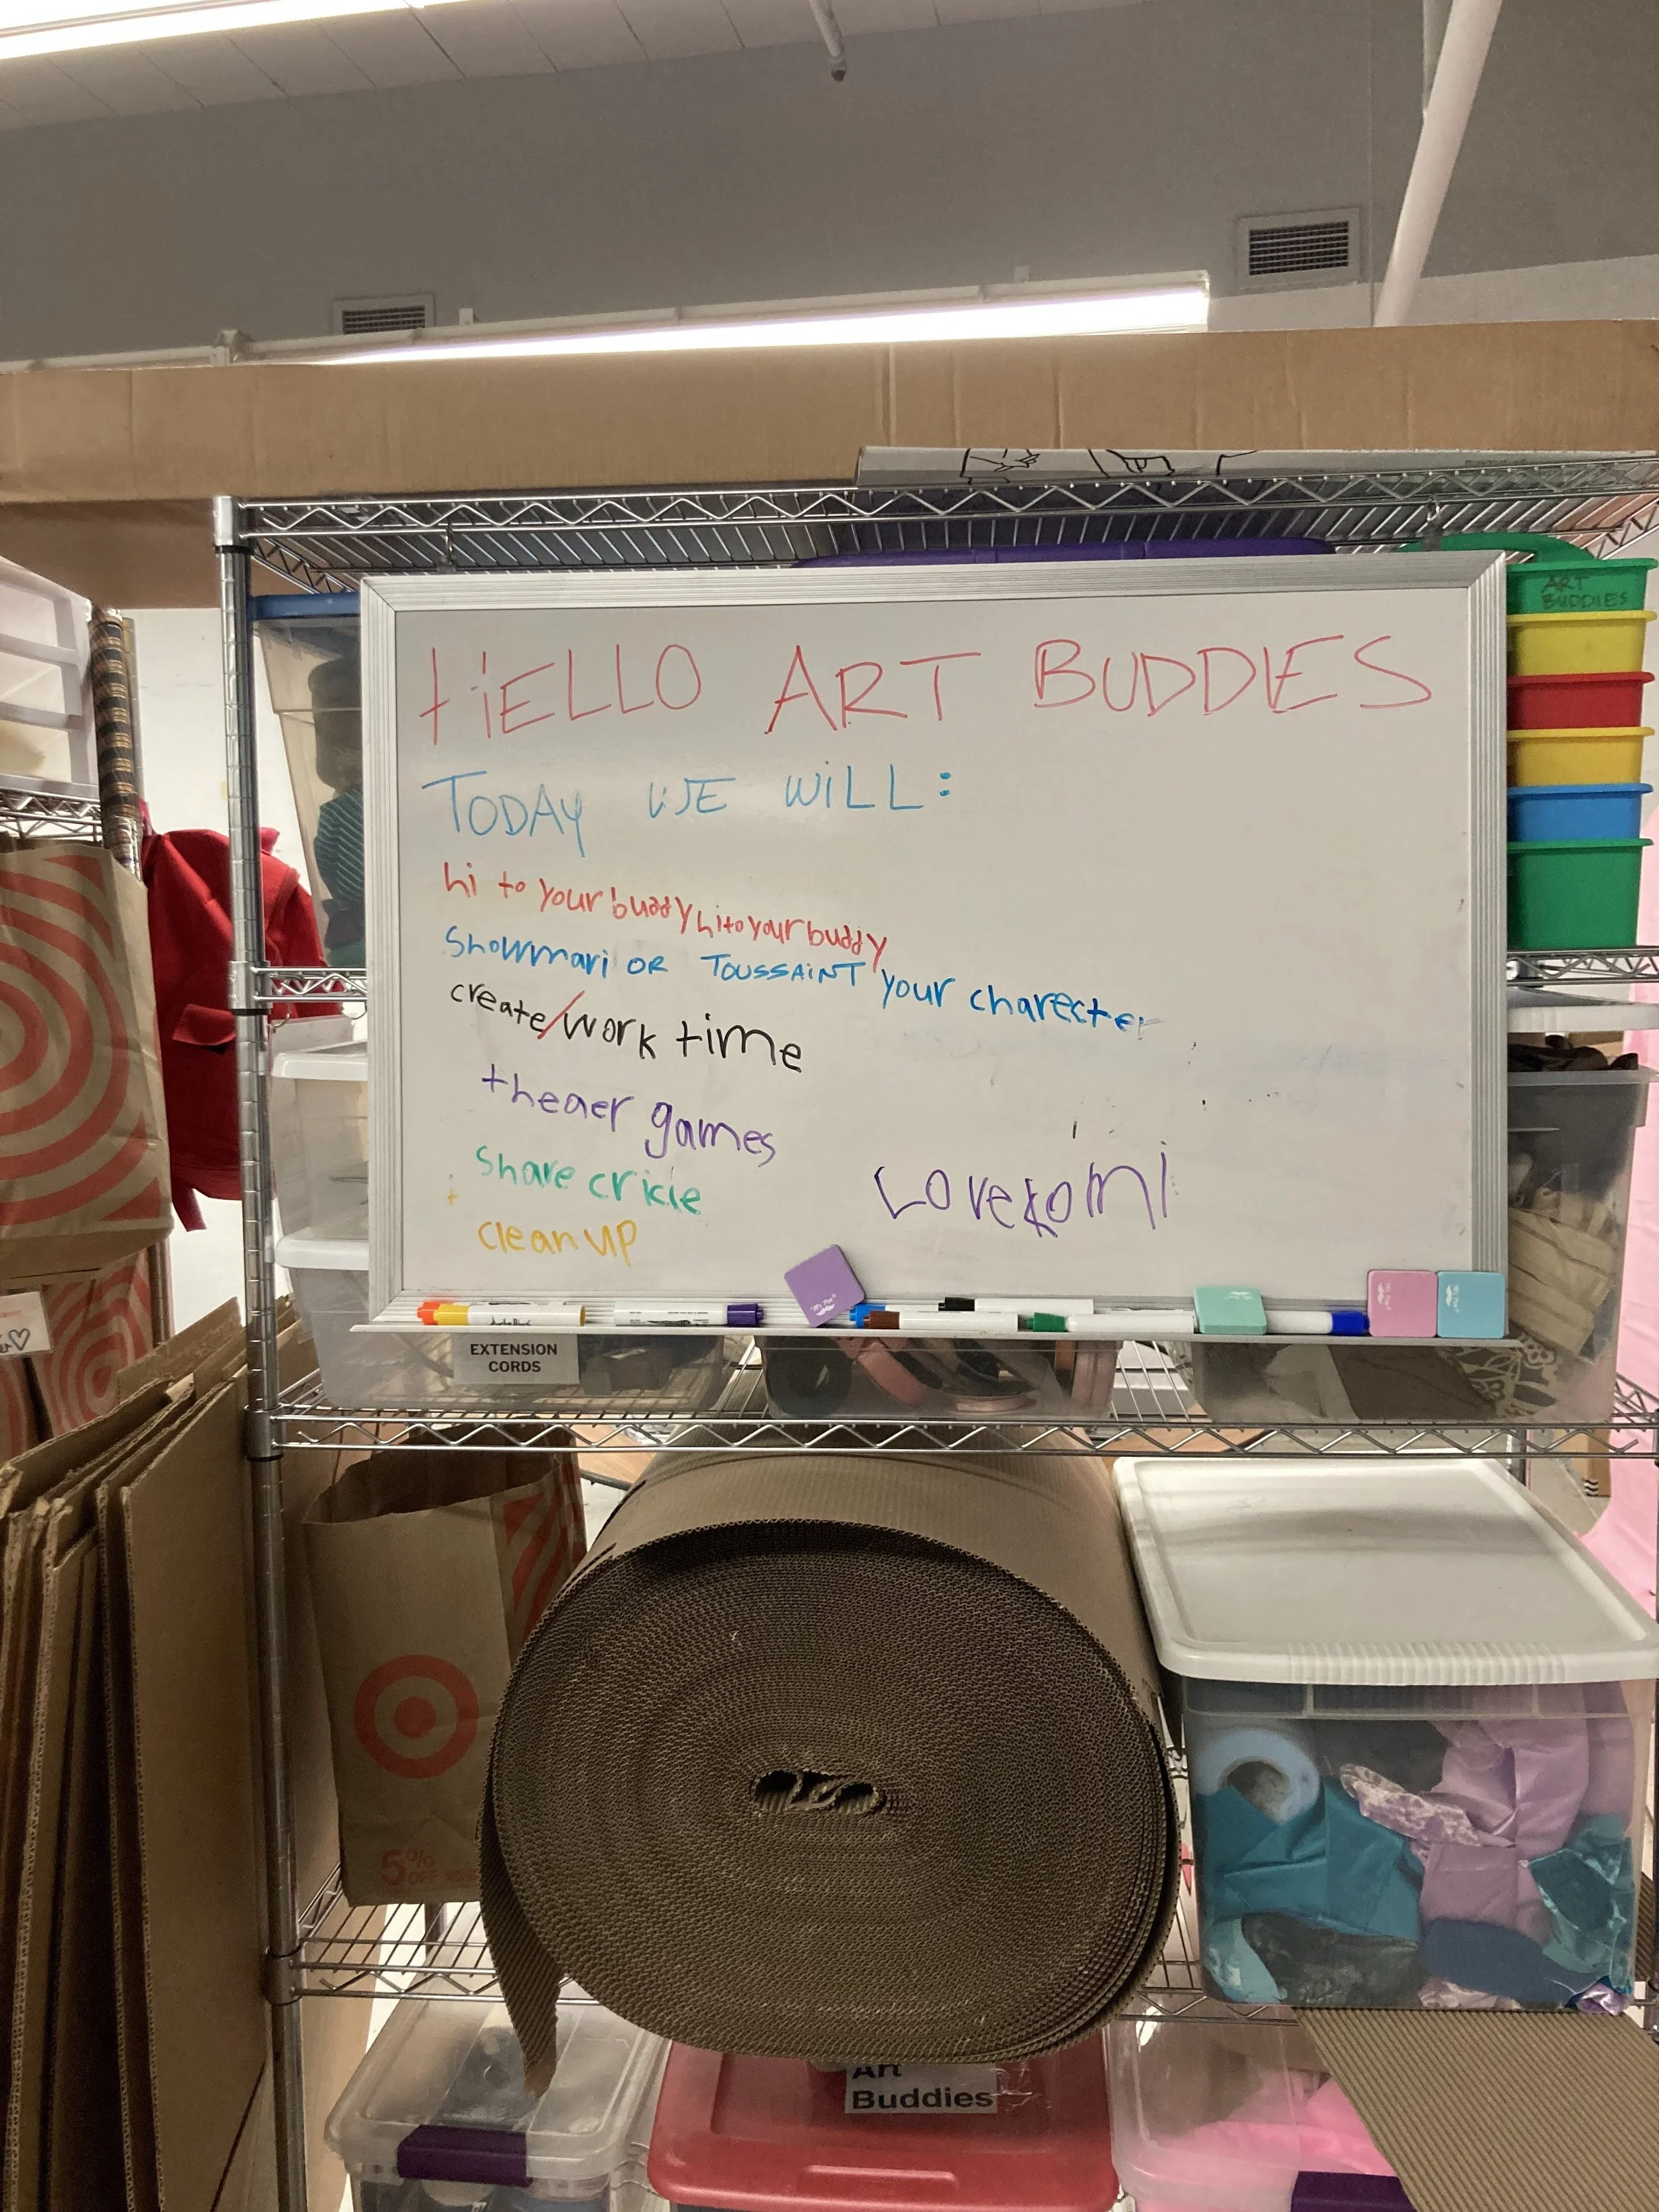 ART
BUDDIES
HELLO ART BUDDIES
TODAY WE WILL:
hi to your buddy hi to your buddy
Showmari OR TOUSSAINT your charecter
create/work time
theaer games
Share cricle
clean up
Love komi
EXTENSION
CORDS
5%
OFF
Art
Buddies